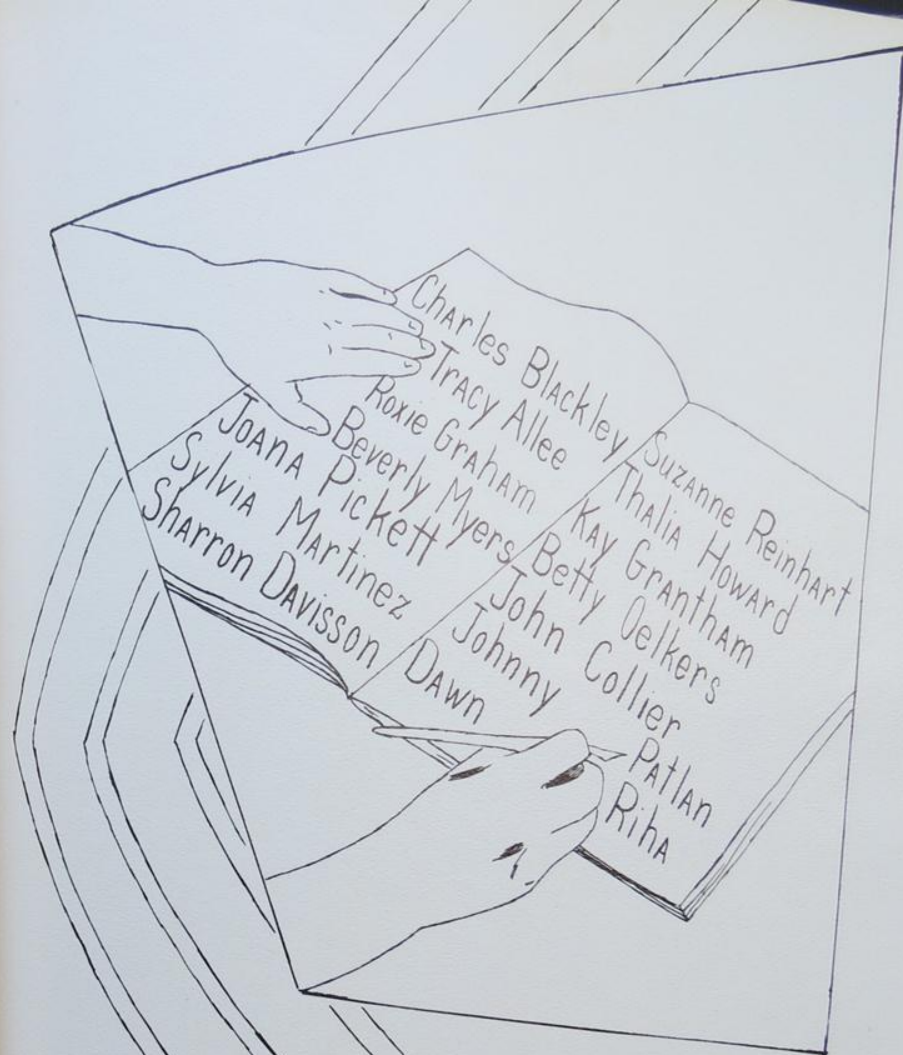 Charles Blackley
Tracy Allee
Roxie Graham
Beverly Myers
Joana Pickett
Sylvia Martinez
Sharron Davisson
Suzanne Reinhart
Thalia Howard
Kay Grantham
Betty Oelkers
John Collier
Johnny Patlan
Dawn Riha